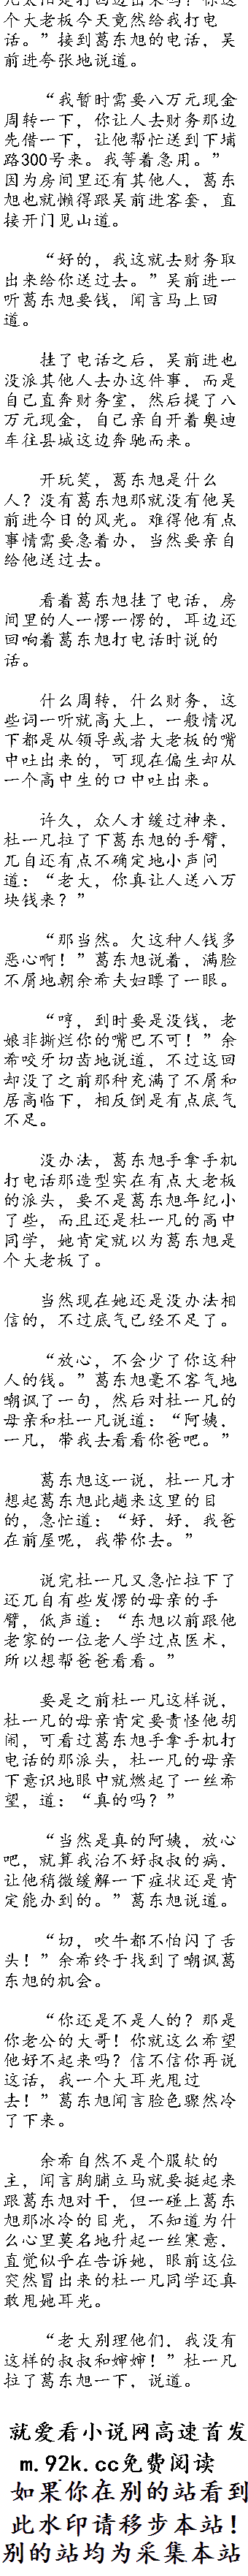 个大老板今天竟然给我打电
话。”接到葛东旭的电话，吴
前进夸张地说道。
“我暂时需要八万元现金
周转一下，你让人去财务那边
先借一下，让他帮忙送到下埔
路300号来。我等着急用。”
因为房间里还有其他人，葛东
旭也就懒得跟吴前进客套，直
接开门见山道。
“好的，我这就去财务取
出来给你送过去。”吴前进一
听葛东旭要钱，闻言马上回
道。
挂了电话之后，吴前进也
没派其他人去办这件事，而是
自己直奔财务室，然后提了八
万元现金，自己亲自开着奥迪
车往县城这边奔驰而来。
开玩笑，葛东旭是什么
人？没有葛东旭那就没有他吴
前进今日的风光。难得他有点
事情需要急着办，当然要亲自
给他送过去。
看着葛东旭挂了电话，房
间里的人一愣一愣的，耳边还
回响着葛东旭打电话时说的
话。
什么周转，什么财务，这
些词一听就高大上，一般情况
下都是从领导或者大老板的嘴
中吐出来的，可现在偏生却从
一个高中生的口中吐出来。
许久，众人才缓过神来，
杜一凡拉了下葛东旭的手臂，
兀自还有点不确定地小声问
道：“老大，你真让人送八万
块钱来？”
“那当然。欠这种人钱多
恶心啊！”葛东旭说着，满脸
不屑地朝余希夫妇瞟了一眼。
“哼，到时要是没钱，老
娘非撕烂你的嘴巴不可！”余
希咬牙切齿地说道，不过这回
却没了之前那种充满了不屑和
居高临下，相反倒是有点底气
不足。
没办法，葛东旭手拿手机
打电话那造型实在有点大老板
的派头，要不是葛东旭年纪小
了些，而且还是杜一凡的高中
同学，她肯定就以为葛东旭是
个大老板了。
当然现在她还是没办法相
信的，不过底气已经不足了。
“放心，不会少了你这种
人的钱。”葛东旭毫不客气地
嘲讽了一句，然后对杜一凡的
母亲和杜一凡说道：“阿姨，
一凡，带我去看看你爸吧。”
葛东旭这一说，杜一凡才
想起葛东旭此趟来这里的目
的，急忙道：“好，好，我爸
在前屋呢，我带你去。”
说完杜一凡又急忙拉下了
还兀自有些发愣的母亲的手
臂，低声道：“东旭以前跟他
老家的一位老人学过点医术，
所以想帮爸爸看看。”
要是之前杜一凡这样说，
杜一凡的母亲肯定要责怪他胡
闹，可看过葛东旭手拿手机打
电话的那派头，杜一凡的母亲
下意识地眼中就燃起了一丝希
望，道：“真的吗？”
“当然是真的阿姨，放心
吧，就算我治不好叔叔的病，
让他稍微缓解一下症状还是肯
定能办到的。”葛东旭说道。
“切，吹牛都不怕闪了舌
头！”余希终于找到了嘲讽葛
东旭的机会。
“你还是不是人的？那是
你老公的大哥！你就这么希望
他好不起来吗？信不信你再说
这话，我一个大耳光甩过
去！”葛东旭闻言脸色骤然冷
了下来。
余希自然不是个服软的
主，闻言胸脯立马就要挺起来
跟葛东旭对干，但一碰上葛东
旭那冰冷的目光，不知道为什
么心里莫名地升起一丝寒意，
直觉似乎在告诉她，眼前这位
突然冒出来的杜一凡同学还真
敢甩她耳光。
“老大别理他们，我没有
这样的叔叔和婶婶！”杜一凡
拉了葛东旭一下，说道。
就爱看小说网高速首发
m.92k.cc免费阅读
如果你在别的站看到
此水印请移步本站！
别的站均为采集本站